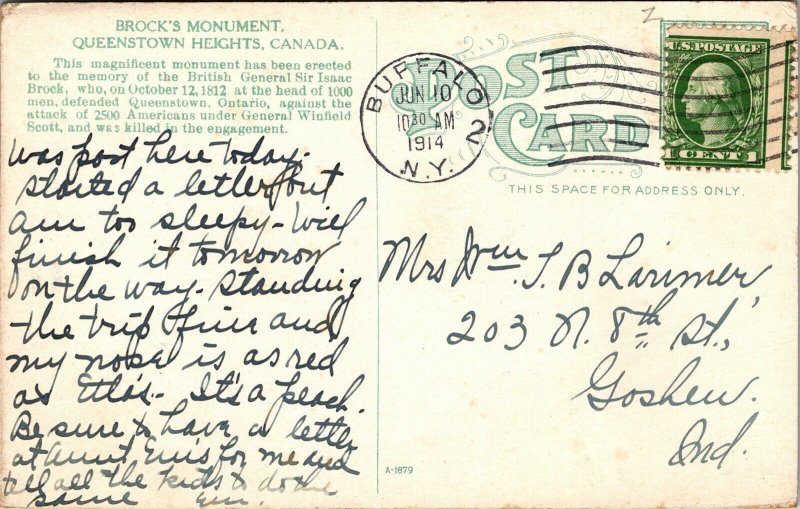 BROCK'S MONUMENT,
QUEENSTOWN HEIGHTS, CANADA.
This magnificent monument has been erected
to the memory of the British General Sir Isaac
Brock, who, on October 12, 1812 at the head of 1000
men, defended Queenstown, Ontario, against the
attack of 2500 Americans under General Winfield
Scott, and was killed in the engagement.
was past here today.
started a letter but
am too sleepy - Will
finish it tomorrow
on the way. Standing
the trip fine and
my nose is as red
as Etta's. - It's a peach.
Be sure & have a letter
at Aunt Em's for me and
tell all the kids to do the
same Em.
POST
CARD
BUFFALO
JUN 10
10 30 AM
1914
N.Y.
2
U.S. POSTAGE
1 CENT 1
THIS SPACE FOR ADDRESS ONLY.
Mrs Wm. T. B Larimer
203 N. 8th St.,
Goshen.
Ind.
A-1879